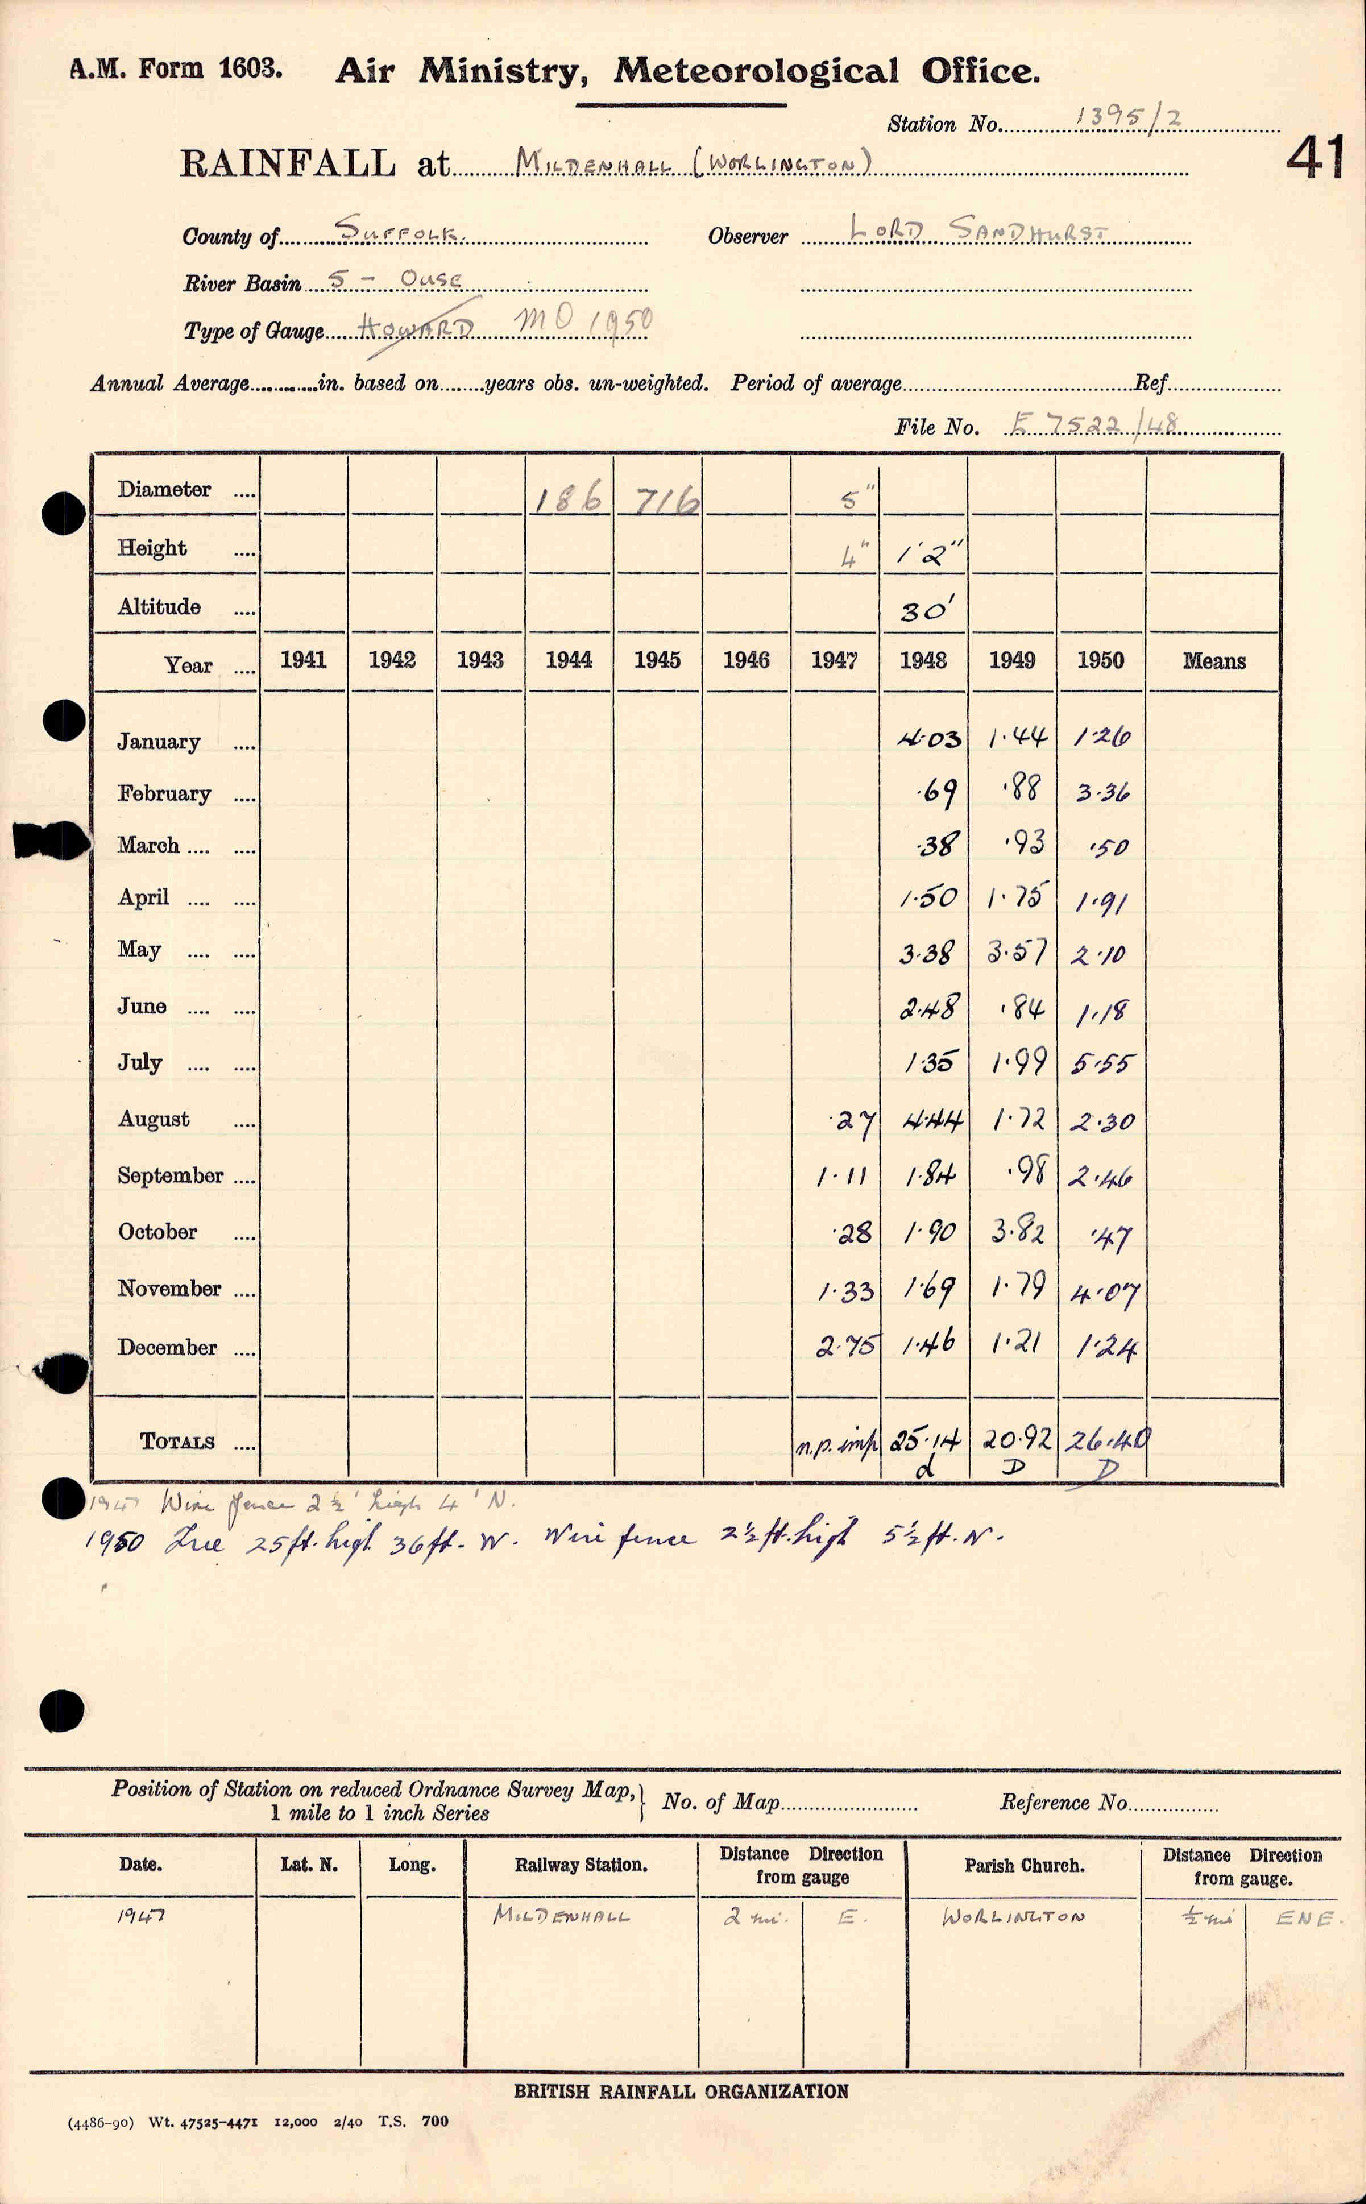 A.M. Form 1603. Air Ministry, Meteorological Office.
Station No. 1395/2
41
RAINFALL at MILDENHALL (WORLINGTON)
County of SUFFOLK. Observer LORD SANDHURST
River Basin 5 - OUSE
Type of Gauge HOWARD MO 1950
Annual Average in. based on years obs. un-weighted. Period of average Ref.
File No. E 7522/48
Diameter 186 716 5"
Height 4" 1'2"
Altitude 30'
Year 1941 1942 1943 1944 1945 1946 1947 1948 1949 1950 Means
January 4.03 1.44 1.26
February .69 .88 3.36
March .38 .93 .50
April 1.50 1.75 1.91
May 3.38 3.57 2.10
June 2.48 .84 1.18
July 1.35 1.99 5.55
August .27 4.44 1.72 2.30
September 1.11 1.84 .98 2.46
October .28 1.90 3.82 .47
November 1.33 1.69 1.79 4.07
December 2.75 1.46 1.21 1.24
TOTALS n.p. imp 25.14 20.92 26.40
d D D
1947 Wire fence 2½' high 4' N.
1950 Tree 25ft. high 36ft. W. Wire fence 2½ft. high 5½ft. N.
Position of Station on reduced Ordnance Survey Map, 1 mile to 1 inch Series } No. of Map Reference No.
Date. Lat. N. Long. Railway Station. Distance Direction from gauge Parish Church. Distance Direction from gauge.
1947 MILDENHALL 2 mi. E. WORLINGTON ½ mi ENE.
BRITISH RAINFALL ORGANIZATION
(4486-90) Wt. 47525-4471 12,000 2/40 T.S. 700